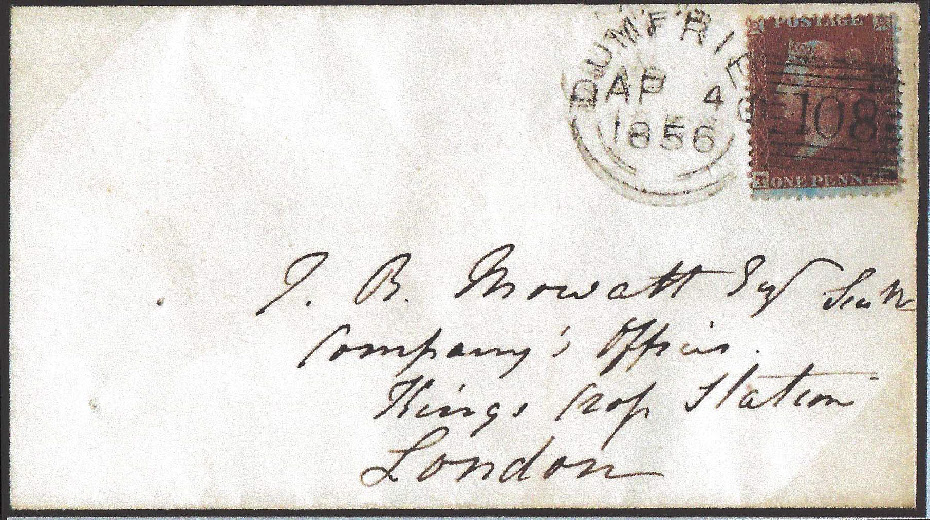 DUMFRIES
AP 4
1856
POSTAGE
108
ONE PENNY
J. B. Mowatt Esqr
Company's Offices.
Kings Cross Station
London